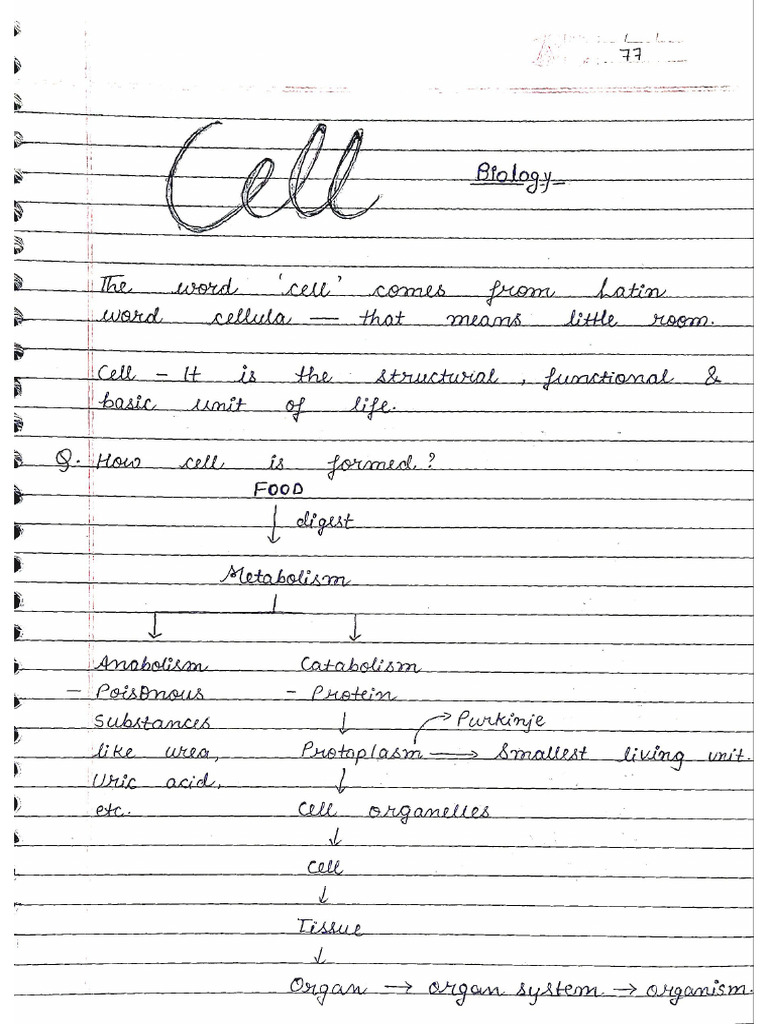 77
Cell
Biology
The word 'cell' comes from Latin
word cellula — that means little room.
Cell – It is the structural, functional &
basic unit of life.
Q. How cell is formed?
FOOD
↓ digest
Metabolism
↓ ↓
Anabolism Catabolism
– Poisonous – Protein
Substances ↓ → Purkinje
like urea, Protoplasm → Smallest living unit.
Uric acid, ↓
etc. Cell organelles
↓
Cell
↓
Tissue
↓
Organ → organ system → organism.